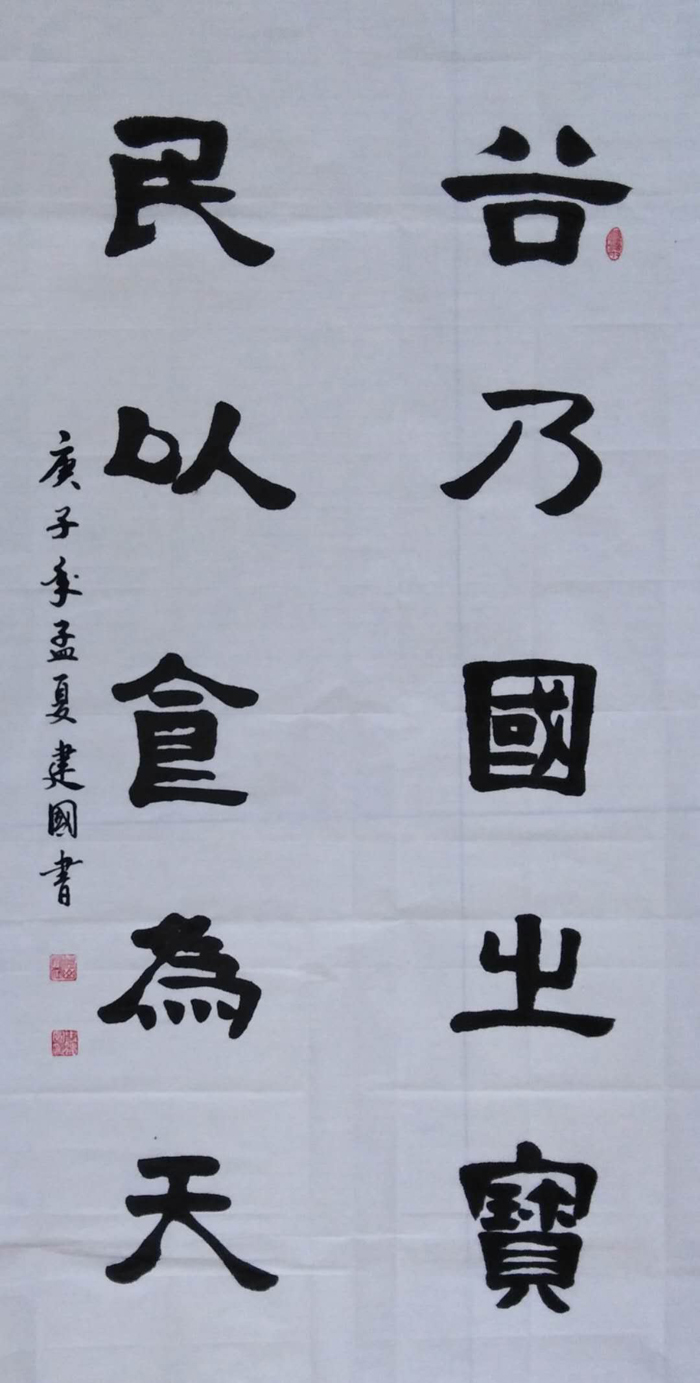 谷乃國之寶
民以食為天
庚子年孟夏建國書